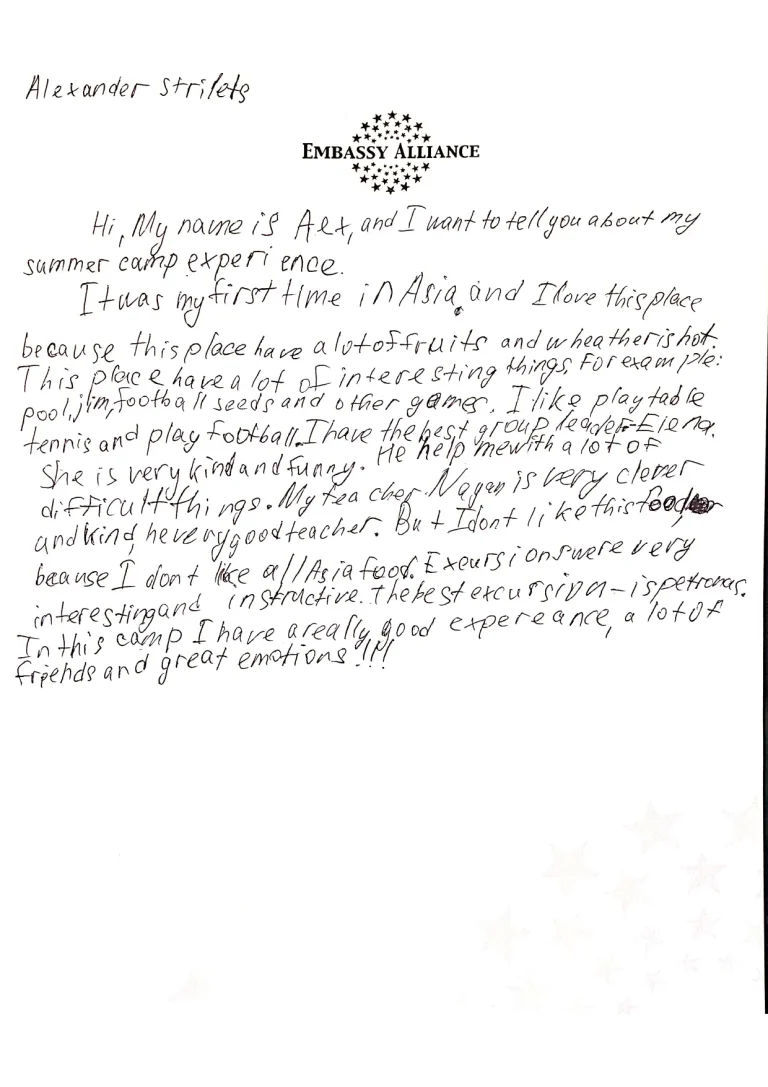 Alexander Strilets
EMBASSY ALLIANCE
Hi, My name is Alex, and I want to tell you about my
summer camp experience.
It was my first time in Asia, and I love this place
because this place have a lot of fruits and wheather is hot.
This place have a lot of interesting things, For example:
pool, jim, football seeds and other games. I like play table
tennis and play football. I have the best group leader - Elena.
She is very kind and funny. He help me with a lot of
difficult things. My teacher Nagan is very clever
and kind, he very good teacher. But I dont like this food,
beause I dont like all Asia food. Exeursions were very
interesting and instructive. The best excursion - is petronas.
In this camp I have a really good expereance, a lot of
friends and great emotions!!!